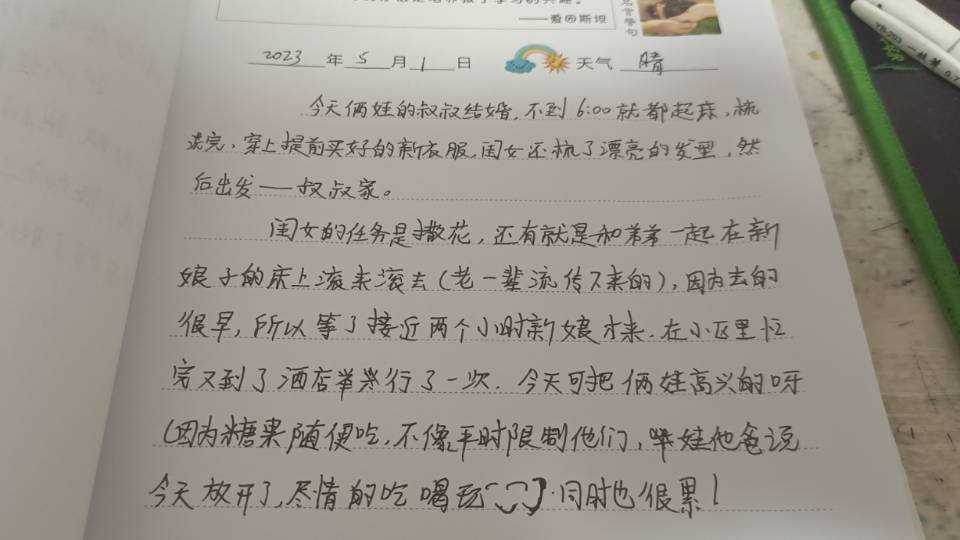 ——爱因斯坦
名言警句
2023 年 5 月 1 日 天气 晴
今天俩娃的叔叔结婚，不到 6:00 就都起床，梳
洗完，穿上提前买好的新衣服，闺女还梳了漂亮的发型，然
后出发——叔叔家。
闺女的任务是撒花，还有就是和弟弟一起在新
娘子的床上滚来滚去（老一辈流传下来的），因为去的
很早，所以等了接近两个小时新娘才来．在小区里忙
完又到了酒店举行了一次．今天可把俩娃高兴的呀
（因为糖果随便吃，不像平时限制他们，娃他爸说
今天放开了，尽情的吃喝玩）．同时也很累！